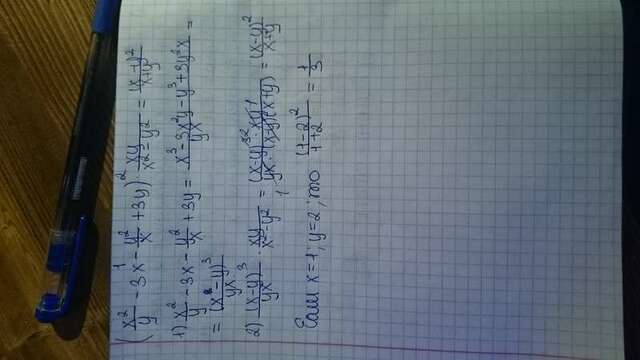 (x²/y - 3x - y²/x + 3y)² xy/(x² - y²) = (x - y)²/(x + y)
1) x²/y - 3x - y²/x + 3y = (x³ - 3x²y - y³ + 3y²x)/(yx) =
= (x - y)³/(yx)
2) (x-y)³/(yx) · xy/(x²-y²) = (x-y)³² · xy¹/(yx · (x-y)(x+y)) = (x-y)²/(x+y)
1
Если x=1; y=2; то (1-2)²/(1+2) = 1/3